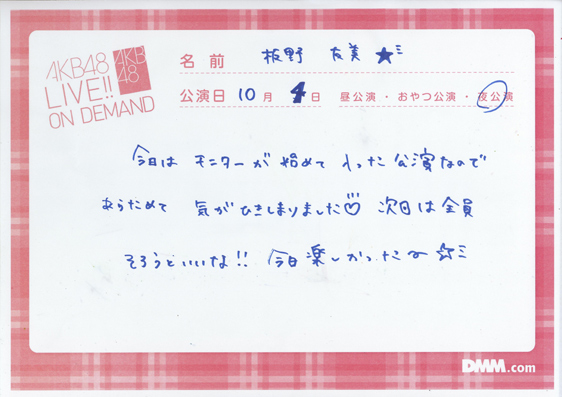 AKB48
LIVE!!
ON DEMAND
AKB
48
名前 板野 友美 ★ミ
公演日 10月 4日 昼公演・おやつ公演・夜公演
今日は モニターが 始めて 入った 公演なので
あらためて 気がひきしまりました♡ 次回は全員
そろうといいな!! 今日 楽しかったな〜☆ミ
DMM.com